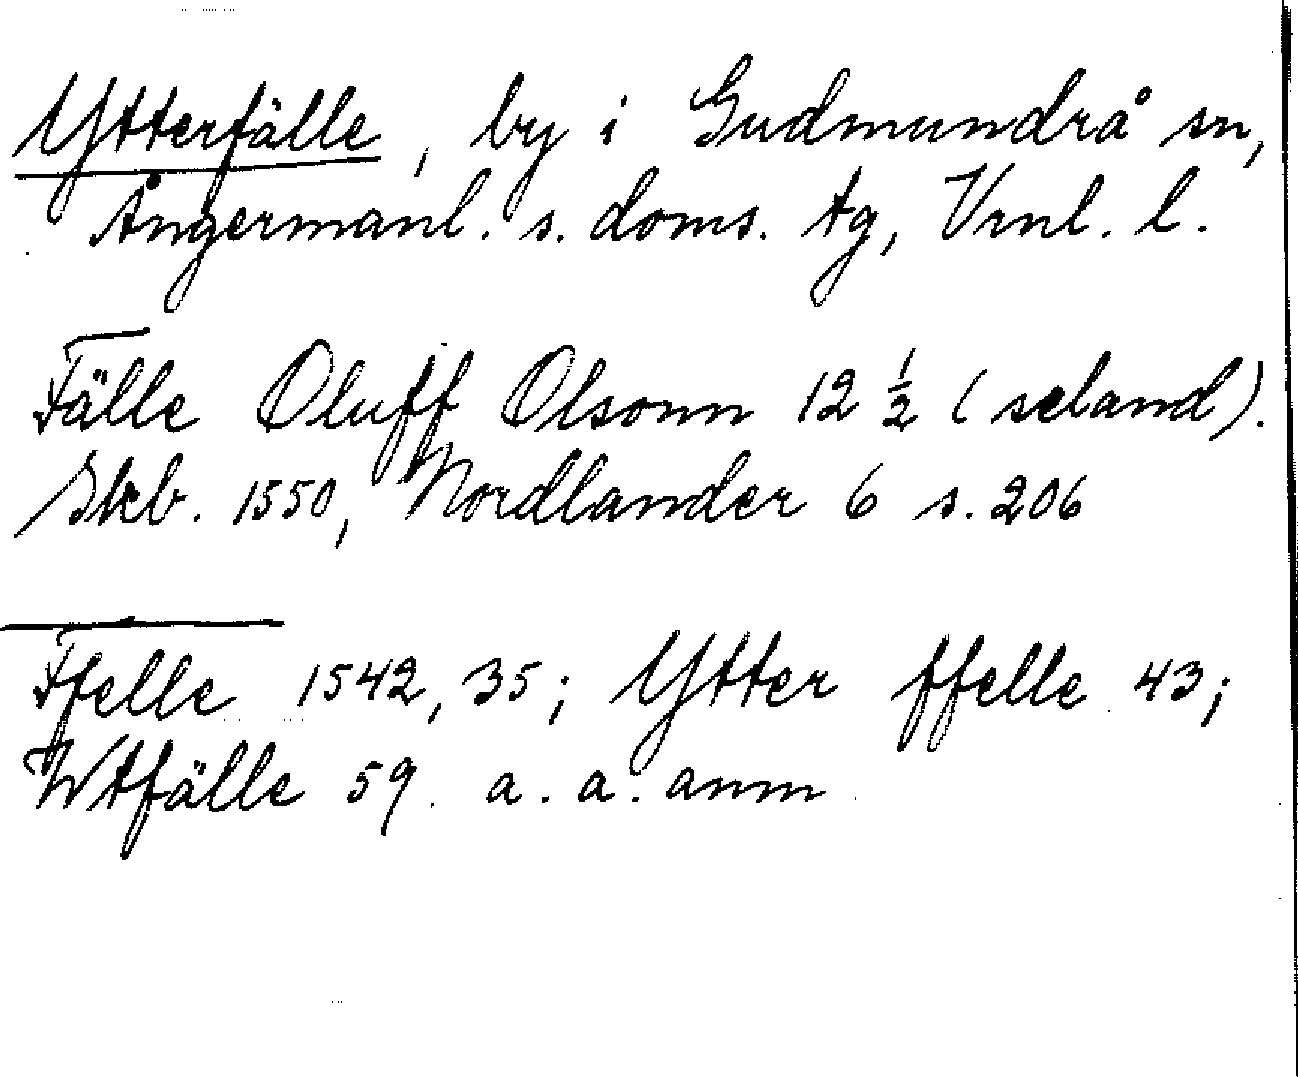 Ytterfälle, by i Gudmundrå sn,
Ångermanl. s. doms. tg, Vrnl. l.
Fälle Oluff Olsonn 12 ½ (seland).
Skb. 1550, Nordlander 6 s. 206
Ffelle 1542, 35; Ytter ffelle 43;
Wtfälle 59. a. a. anm